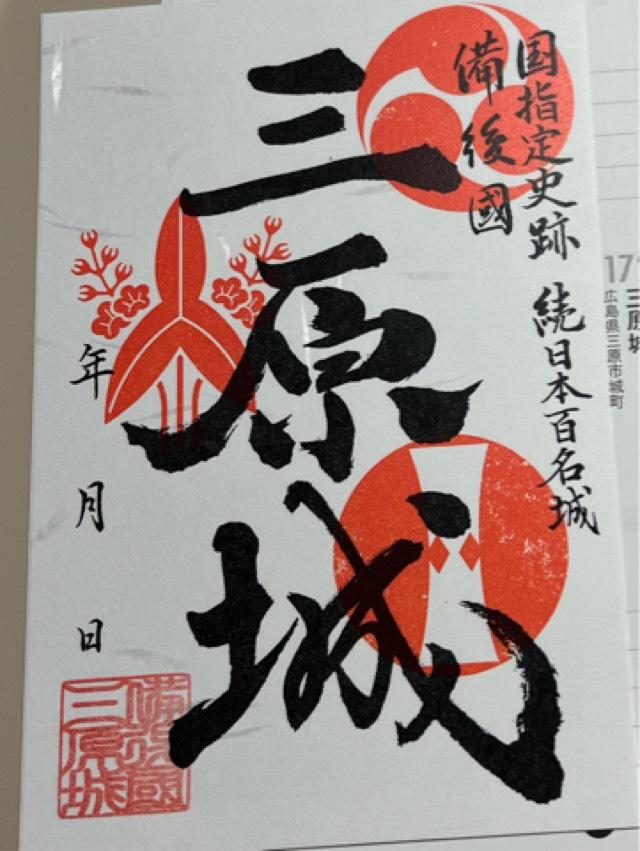 国指定史跡 続日本百名城
備後國
三原城
年 月 日
備後國
三原城
17
三原城
広島県三原市城町